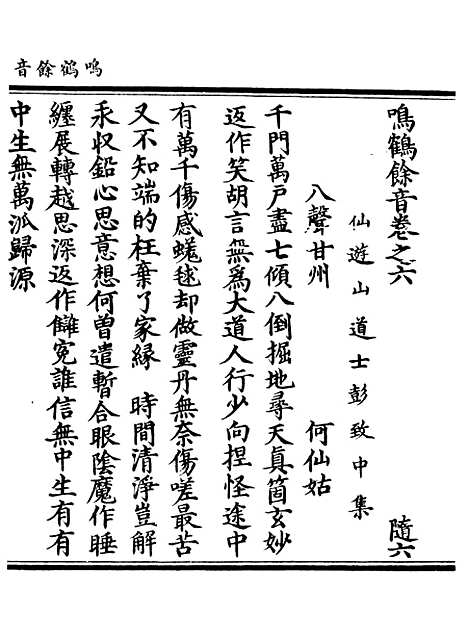 鳴鶴餘音
鳴鶴餘音卷之六 隨六
仙遊山道士彭致中集
八聲甘州 何仙姑
千門萬戶盡七傾八倒掘地尋天真箇玄妙
返作笑胡言無爲大道人行少向捏怪途中
有萬千傷感蠛毬却做靈丹無奈傷嗟最苦
又不知端的枉棄了家緣 時間清淨豈解
汞収鉛心思意想何曾遣暫合眼陰魔作睡
纏展轉越思深返作讎寃誰信無中生有有
中生無萬派歸源